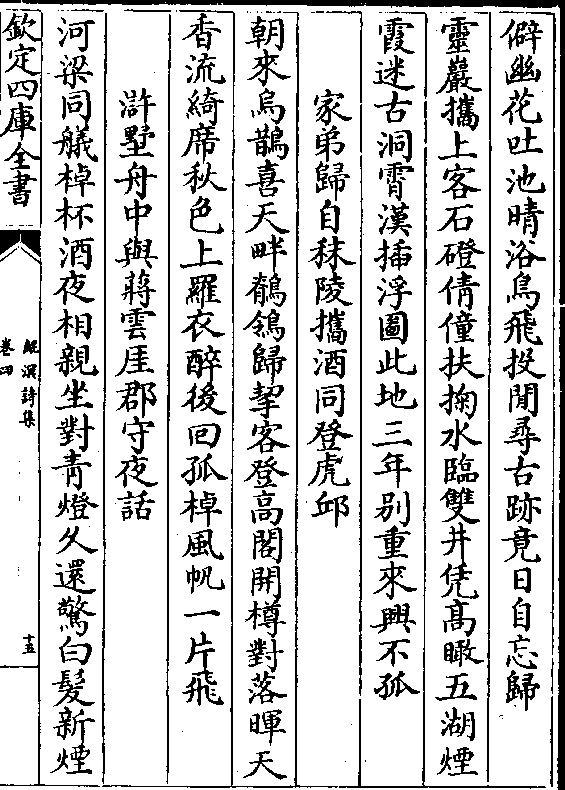 僻幽花吐池晴浴鳥飛投閒尋古跡竟日自忘歸
靈巖攜上客石磴倩僮扶掬水臨雙井凭高瞰五湖煙
霞迷古洞霄漢插浮圖此地三年别重來興不孤
家弟歸自秣陵攜酒同登虎邱
朝來烏鵲喜天畔鶺鴒歸挈客登高閣開樽對落暉天
香流綺席秋色上羅衣醉後回孤棹風帆一片飛
滸墅舟中與蔣雲厓郡守夜話
河梁同艤棹杯酒夜相親坐對青燈久還驚白髮新煙
欽定四庫全書
鯤溟詩集
卷四
十五